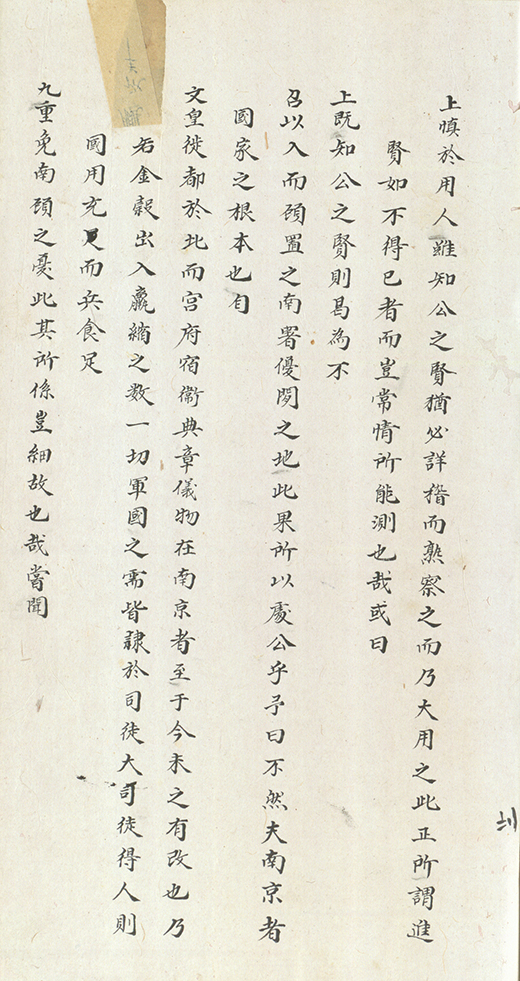 上慎於用人雖知公之賢猶必詳稽而熟察之而乃大用之此正所謂進
賢如不得已者而豈常情所能測也哉或曰
上既知公之賢則曷為不
召以入而顧置之南署優閑之地此果所以處公乎予曰不然夫南京者
國家之根本也自
文皇徙都於北而宮府宿衞典章儀物在南京者至于今未之有改也乃
若金穀出入贏縮之数一切軍國之需皆隷於司徒大司徒得人則
國用充足而兵食足
九重免南顧之憂此其所係豈細故也哉嘗聞